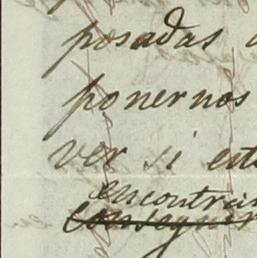 posadas
ponernos
ver si
encontrar
conseguir